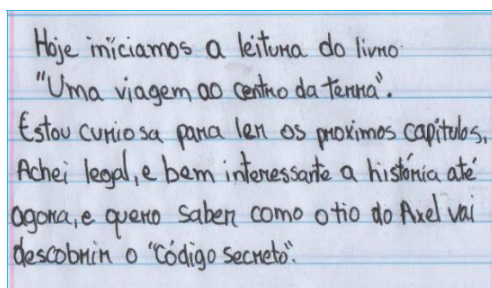 Hoje iniciamos a leitura do livro
"Uma viagem ao centro da terra".
Estou curiosa para ler os proximos capítulos,
Achei legal, e bem interessante a história até
agora, e quero saber como o tio do Axel vai
descobrir o "Código secreto".